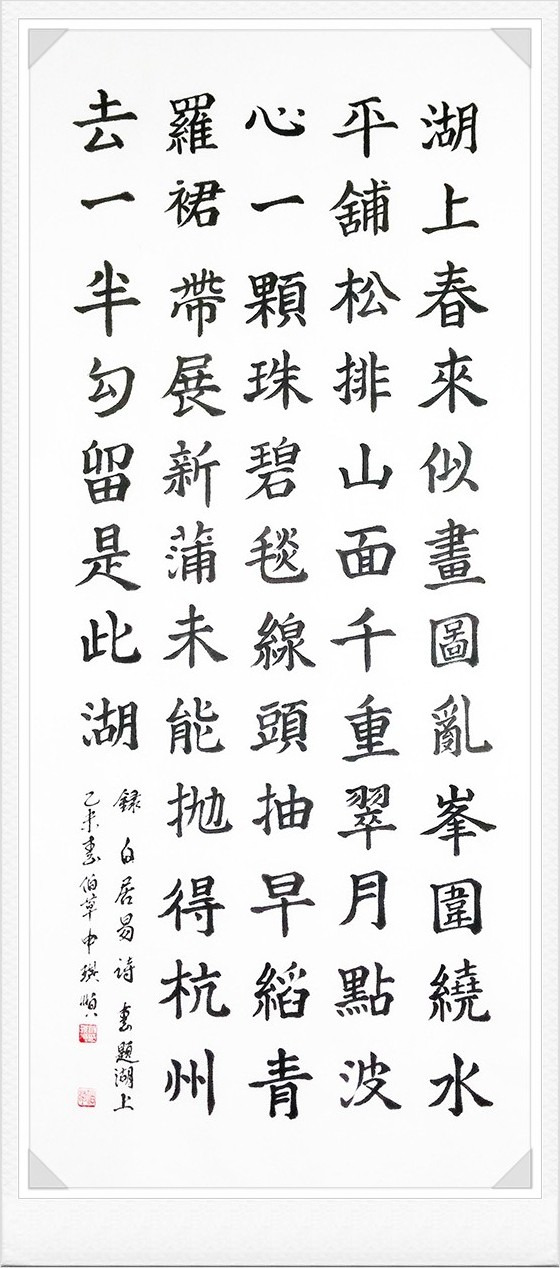 湖上春來似畫圖亂峯圍繞水
平舖松排山面千重翠月點波
心一顆珠碧毯線頭抽早縚青
羅裙帶展新蒲未能抛得杭州
去一半勾留是此湖
錄白居易詩 春題湖上
乙未春伯草申